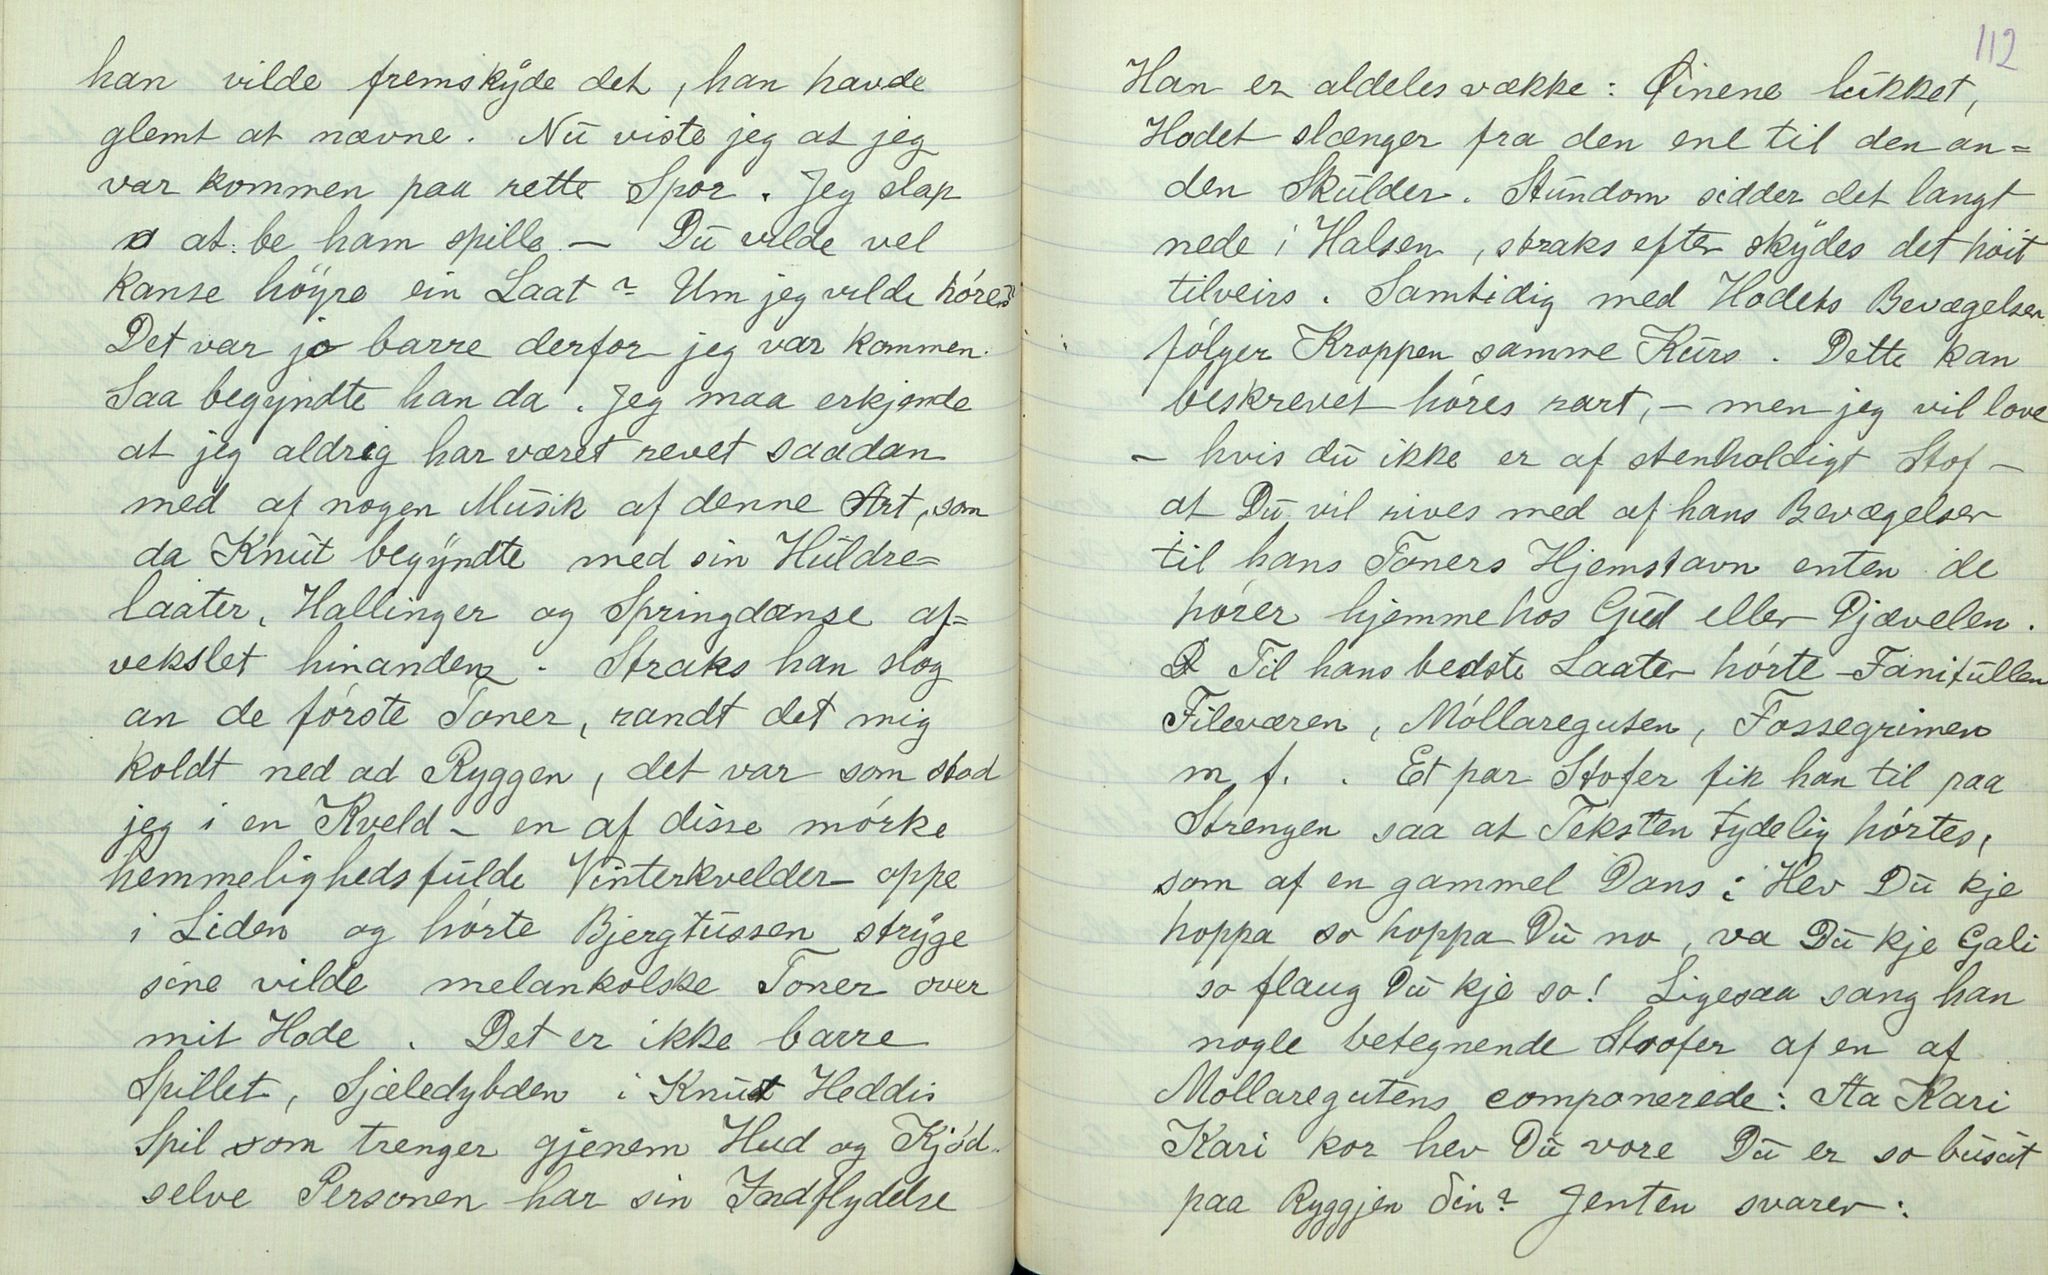 han vilde fremskyde det, han havde
glemt at nævne. Nu viste jeg at jeg
var kommen paa rette Spor. Jeg slap
at be ham spille. — Du vilde vel
kanse höyre ein Laat? Um jeg vilde höre?
Det var jo barre derfor jeg var kommen.
Saa begyndte han da. Jeg maa erkjende
at jeg aldrig har været revet saadan
med af nogen Musik af denne Art, som
da Knut begyndte med sin Huldre=
laater, Hallinger og Springdanse af=
vekslet hinanden. Straks han slog
an de förste Toner, randt det mig
koldt ned ad Ryggen, det var som stod
jeg i en Kveld – en af disse mörke
hemmelighedsfulde Vinterkvelder oppe
i Liden og hörte Bjergtussen stryge
sine vilde melankolske Toner over
mit Hode. Det er ikke barre
Spillet, Sjæledybden i Knut Heddis
Spil som trenger gjenem Hud og Kjöd –
selve Personen har sin Indflydelse
112
Han er aldeles vække: Öinene lukket,
Hodet slænger fra den ene til den an=
den Skulder. Stundom sidder det langt
nede i Halsen, straks efter skydes det höit
tilveirs. Samtidig med Hodets Bevægelser
fölger Kroppen samme Kurs. Dette kan
beskrevet höres rart, – men jeg vil love
– hvis du ikke er af stenholdigt Stof –
at Du vil rives med af hans Bevægelser
til hans Toners Hjemstavn enten de
hörer hjemme hos Gud eller Djævelen.
Til hans bedste Laater hörte – Fanitullen
Fileværen, Möllareguten, Fossegrimen
m. f. . Et par Stofer fik han til paa
Strengen saa at Teksten tydelig hörtes,
som af en gammel Dans: Hev Du kje
hoppa so hoppa Du no, va Du kje Gali
so flaug Du kje so! Ligesaa sang han
nogle betegnende Stofer af en af
Möllaregutens componerede: Aa Kari
Kari kor hev Du vore Du er so busut
paa Ryggjen din? Jenten svarer: